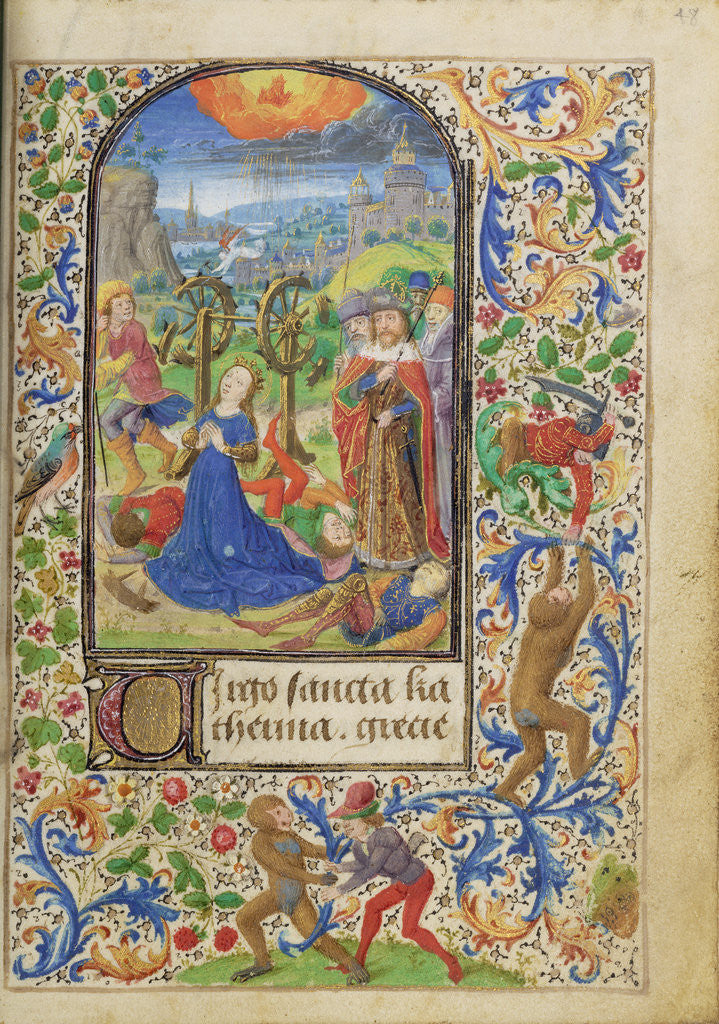 48
Virgo sancta ka
therina . grecie